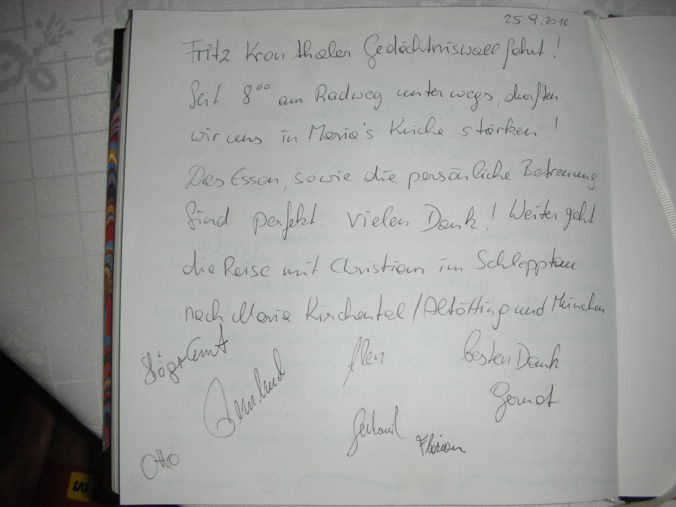 25.9.2016
Fritz Kronthaler Gedächtniswallfahrt!
Seit 8⁰⁰ am Radweg unterwegs, durften
wir uns in Maria's Küche stärken!
Das Essen, sowie die persönliche Betreuung
sind perfekt. Vielen Dank! Weiter geht
die Reise mit Christian im Schlepptau
nach Maria Kirchental/Altötting und München
besten Dank
Gernot
Gerhard
Florian
Otto